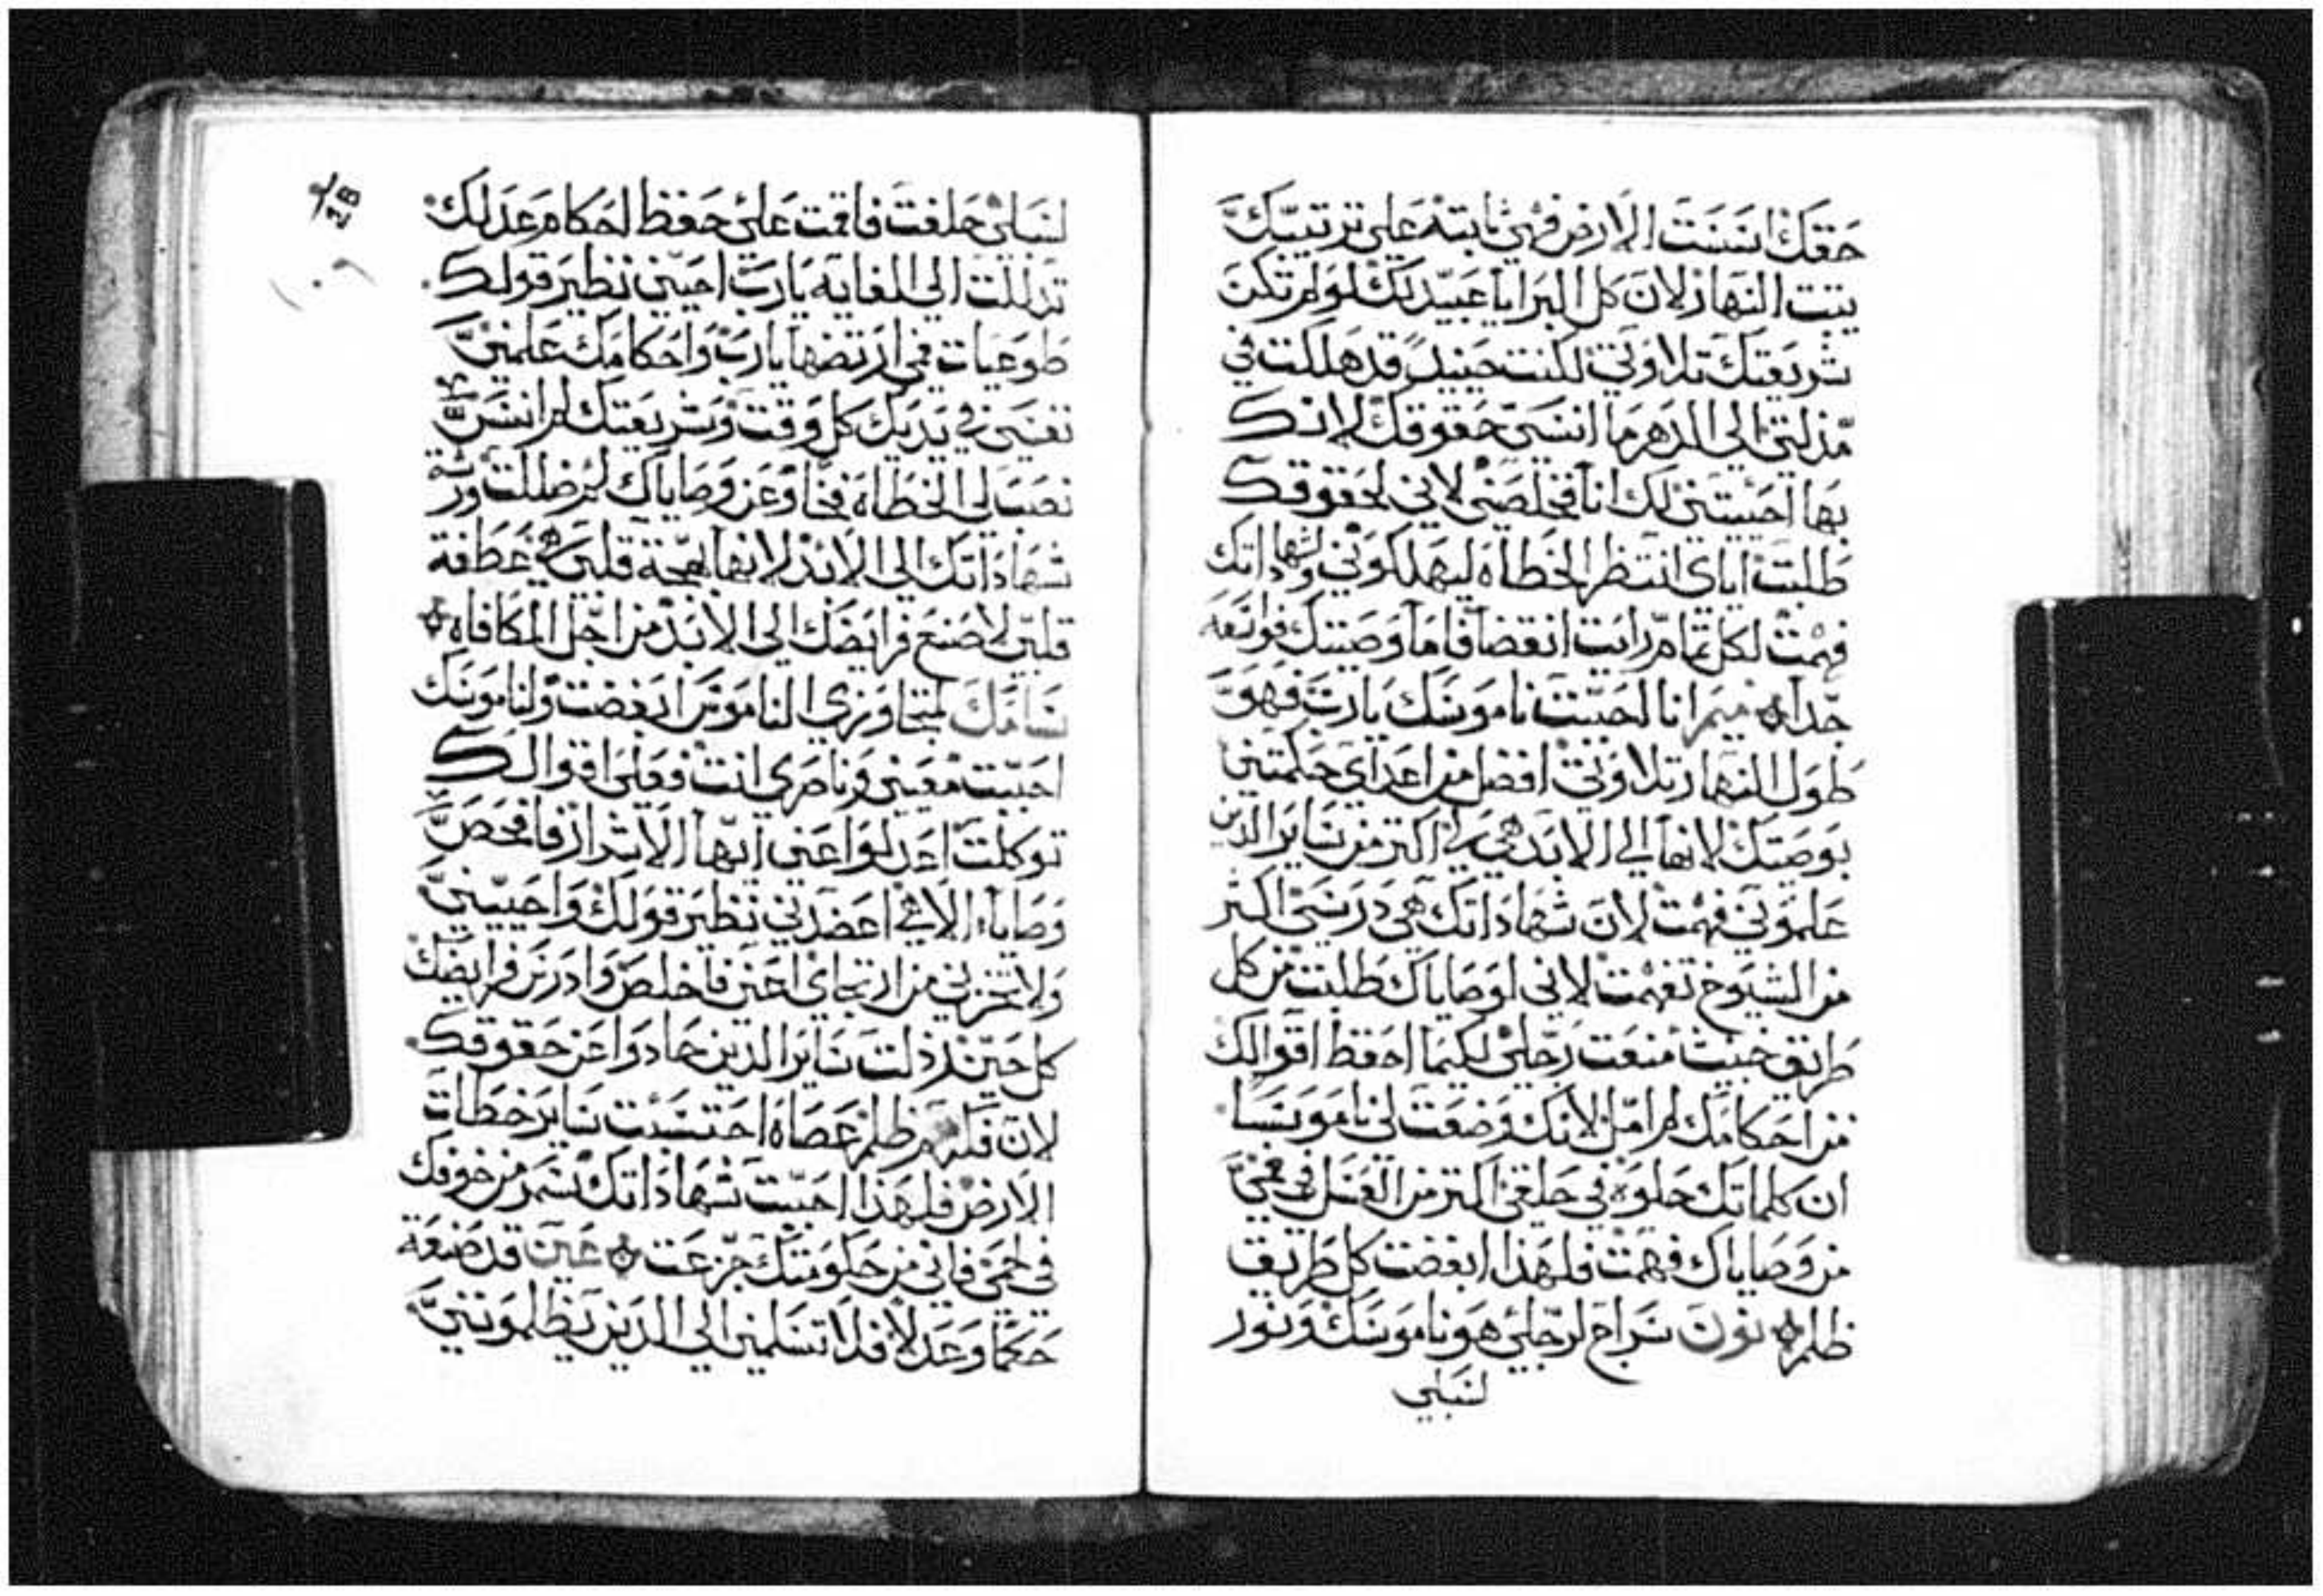 حَقك اسَسَت الارض فهي ثابته على ترتيبك
يثبت النهار لان كل البرايا عبيد لك لو لم تكن
شريعتك تلاوتي لكنت حينيد قد هلكت في
مذلتي الى الدهر ما انسى حقوقك لانك
بها احييتني لك انا فخلصني لاني لحقوقك
طلبت اياى انتظر الخطاه ليهلكوني ولشهاداتك
فهمت لكل تمام رايت انقضا فاما وصيتك فواسَعه
جدا ميم انا احببت ناموسك يارب فهو
طول النهار تلاوتي افضل من اعداى حكمتني
بوصيتك لانها الى الابد هي لي اكتر من ساير الذين
علموني فهمت لان شهاداتك هي درسي اكتر
من الشيوخ تفهمت لاني لوصاياك طلبت من كل
طريق خبيث منعت رجلي لكيما احفظ اقوالك
من احكامك لم امل لانك وضعت لي ناموسا
ان كلماتك حلوة في حلقي اكتر من العسل في فمي
من وصاياك فهمت فلهذا ابغضت كل طريق
ظلم نون سراج لرجلي هو ناموسك ونور
لسبلي
لسبلي حلفت فاقمت على حفظ احكام عدلك
تذللت الى الغايه يارب احيني نظير قولك
طوعيات فمي ارتضها يارب واحكامك علمني
نفسي في يديك كل وقت وشريعتك لم انسى
نصب لي الخطاه فخا وعن وصاياك لم ضللت ورثة
شهاداتك الى الابد لانها بهجة قلبي هي عطفة
قلبي لاصنع فرايضك الى الابد من اجل المكافاه
سامك لمتجاوزي الناموس ابغضت ولناموسك
احببت معيني وناصري انت فعلى اقوالك
توكلت اعدلوا عني ايها الاشرار فافحص
وصاياء الاهي اعضدني نظير قولك واحييني
ولا تخزني من ارتجاي اعني فاخلص وادرس فرايضك
كل حين رذلت ساير الذين حادوا عن حقوقك
لان فكرهم ظلم عصاه احتسبت ساير خطات
الارض فلهذا احببت شهاداتك سمر من خوفك
في لحمي فاني من حكومتك جزعت عين قد صنعة
حكما وعدلا فلا تسلمني الى الذين يظلمونني